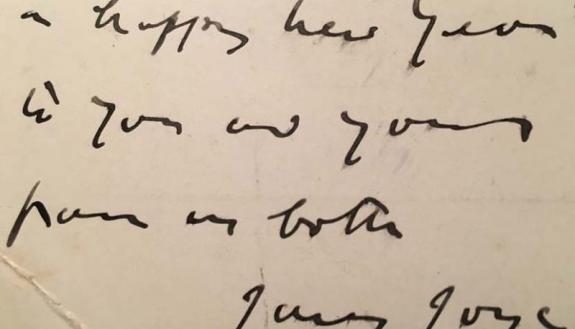 a happy new year
to you and yours
from us both
James Joyce